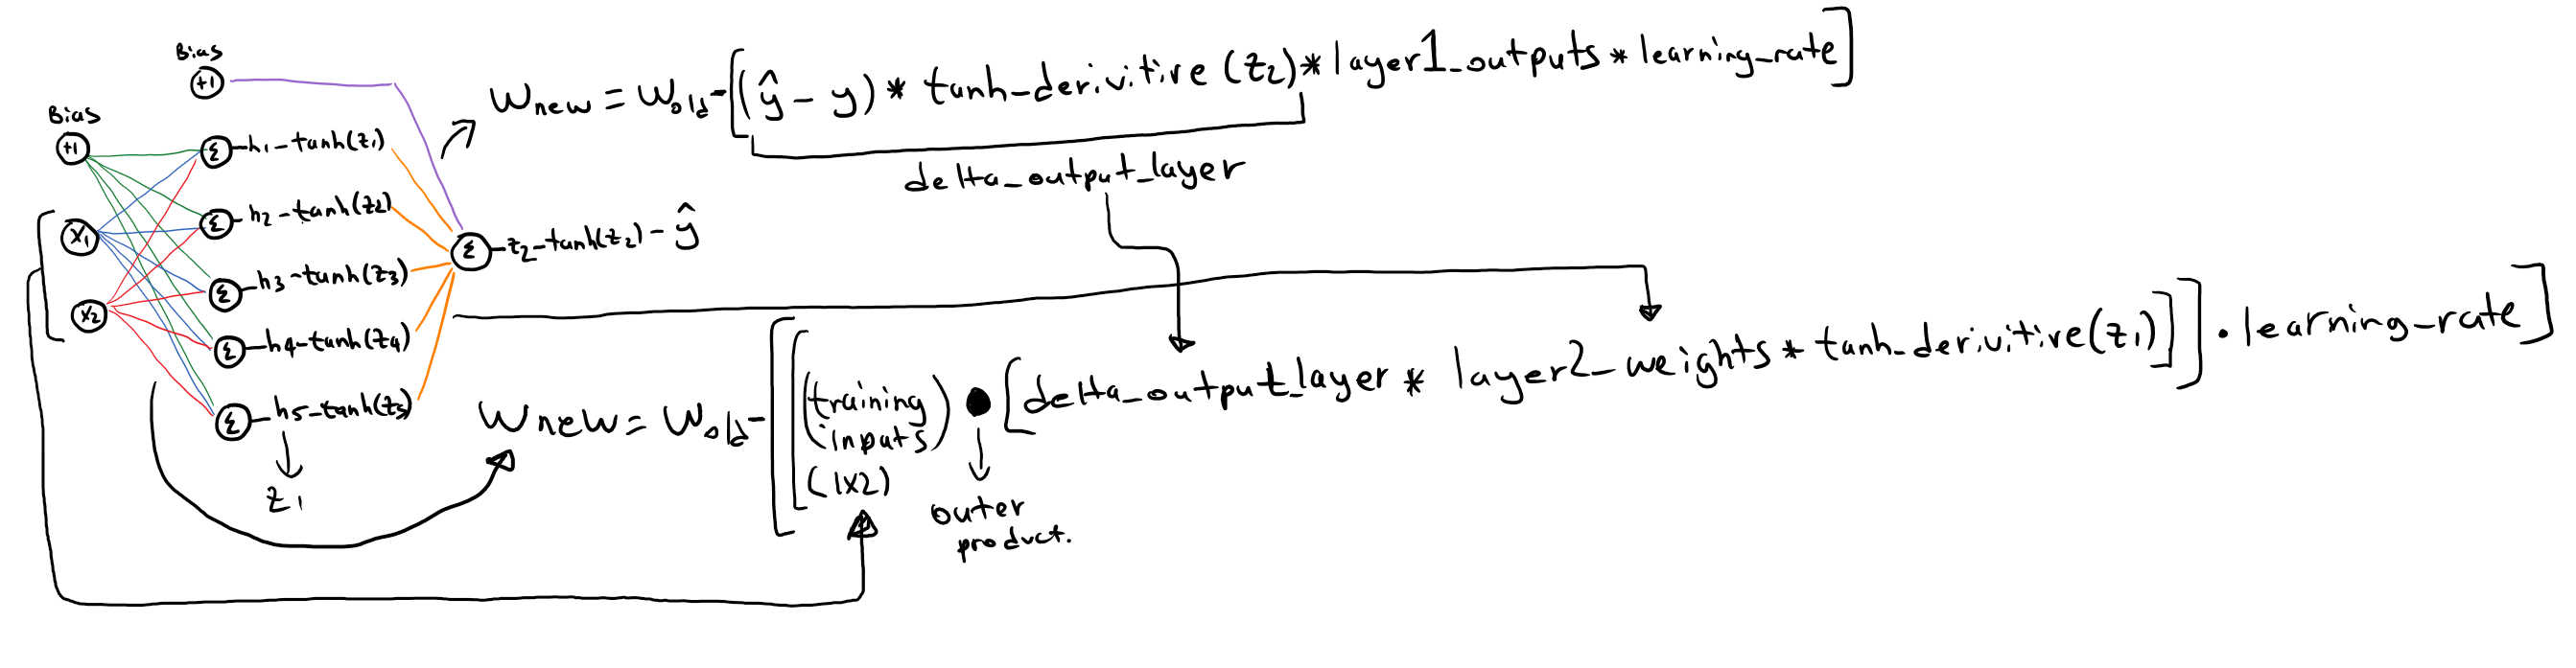 Bias
+1
Bias
+1
x1
x2
Σ h1-tanh(z1)
Σ h2-tanh(z2)
Σ h3-tanh(z3)
Σ h4-tanh(z4)
Σ h5-tanh(z5)
z1
Σ z2-tanh(z2)-ŷ
Wnew = Wold-[(ŷ-y) * tanh-derivitive (z2)*layer1_outputs * learning_rate]
delta_output_layer
Wnew = Wold-[[(training inputs) ● [delta_output_layer * layer2_weights * tanh_derivitive(z1)]] . learning_rate]
(1x2)
outer
product.